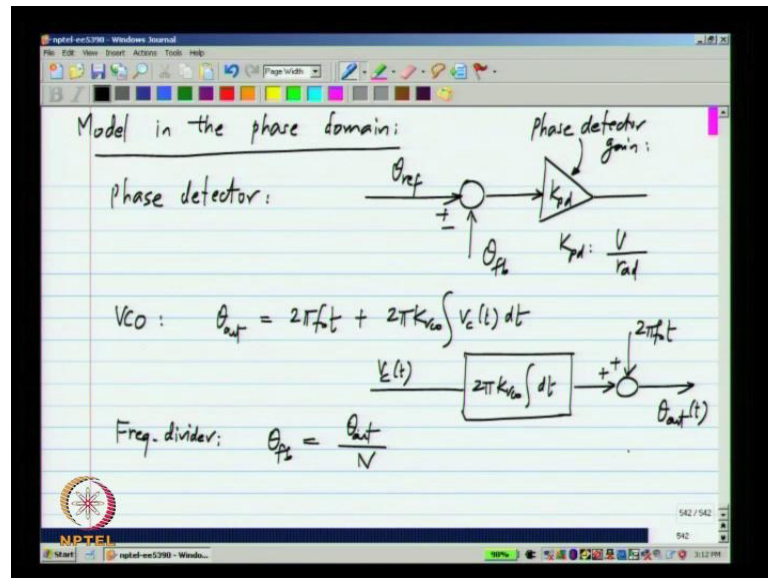 nptel-ee5390 - Windows Journal
File Edit View Insert Actions Tools Help
Page Width
B I
Model in the phase domain:
Phase detector gain:
Phase detector:
θref
+
−
Kpd
θfb
Kpd: V/rad
VCO: θout = 2πf₀t + 2πKvco∫Vc(t) dt
2πf₀t
Vc(t)
2πKvco∫dt
+ +
θout(t)
Freq. divider: θfb = θout/N
542 / 542
542
NPTEL
Start
nptel-ee5390 - Windo...
90%
3:12 PM